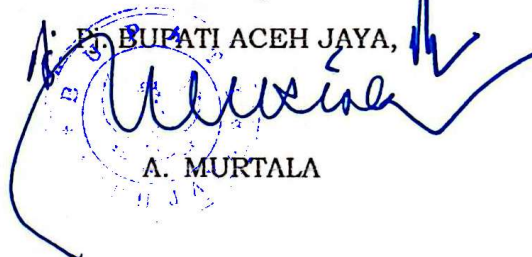 Pj. BUPATI ACEH JAYA,
A. MURTALA